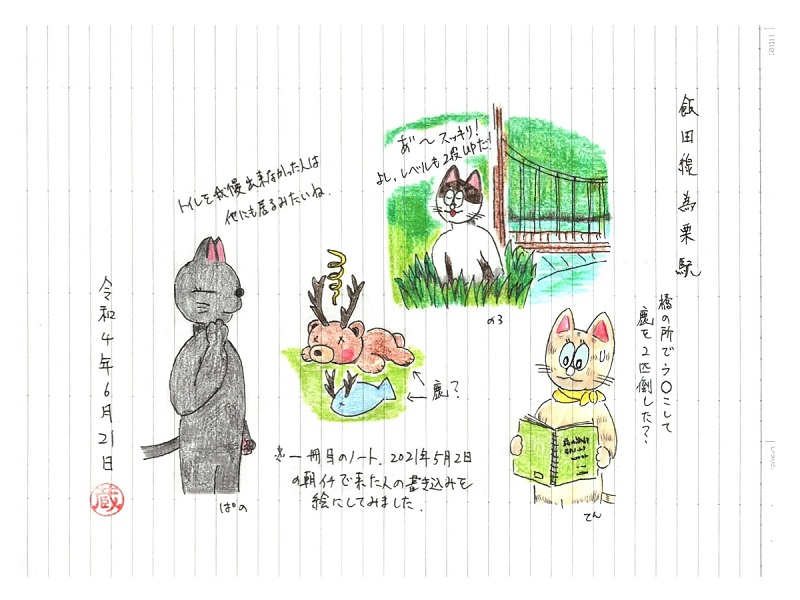 飯田線為栗駅
橋の所でう〇こして
鹿を2匹倒した??
あ゛〜スッキリ!
よし、レベルも2段UPだ!
のろ
トイレを我慢出来なかった人は
他にも居るみたいね.
ぱの
鹿?
てん
一冊目のノート. 2021年5月2日
の朝イチで来た人の書き込みを
絵にしてみました.
令和4年6月21日
蔵